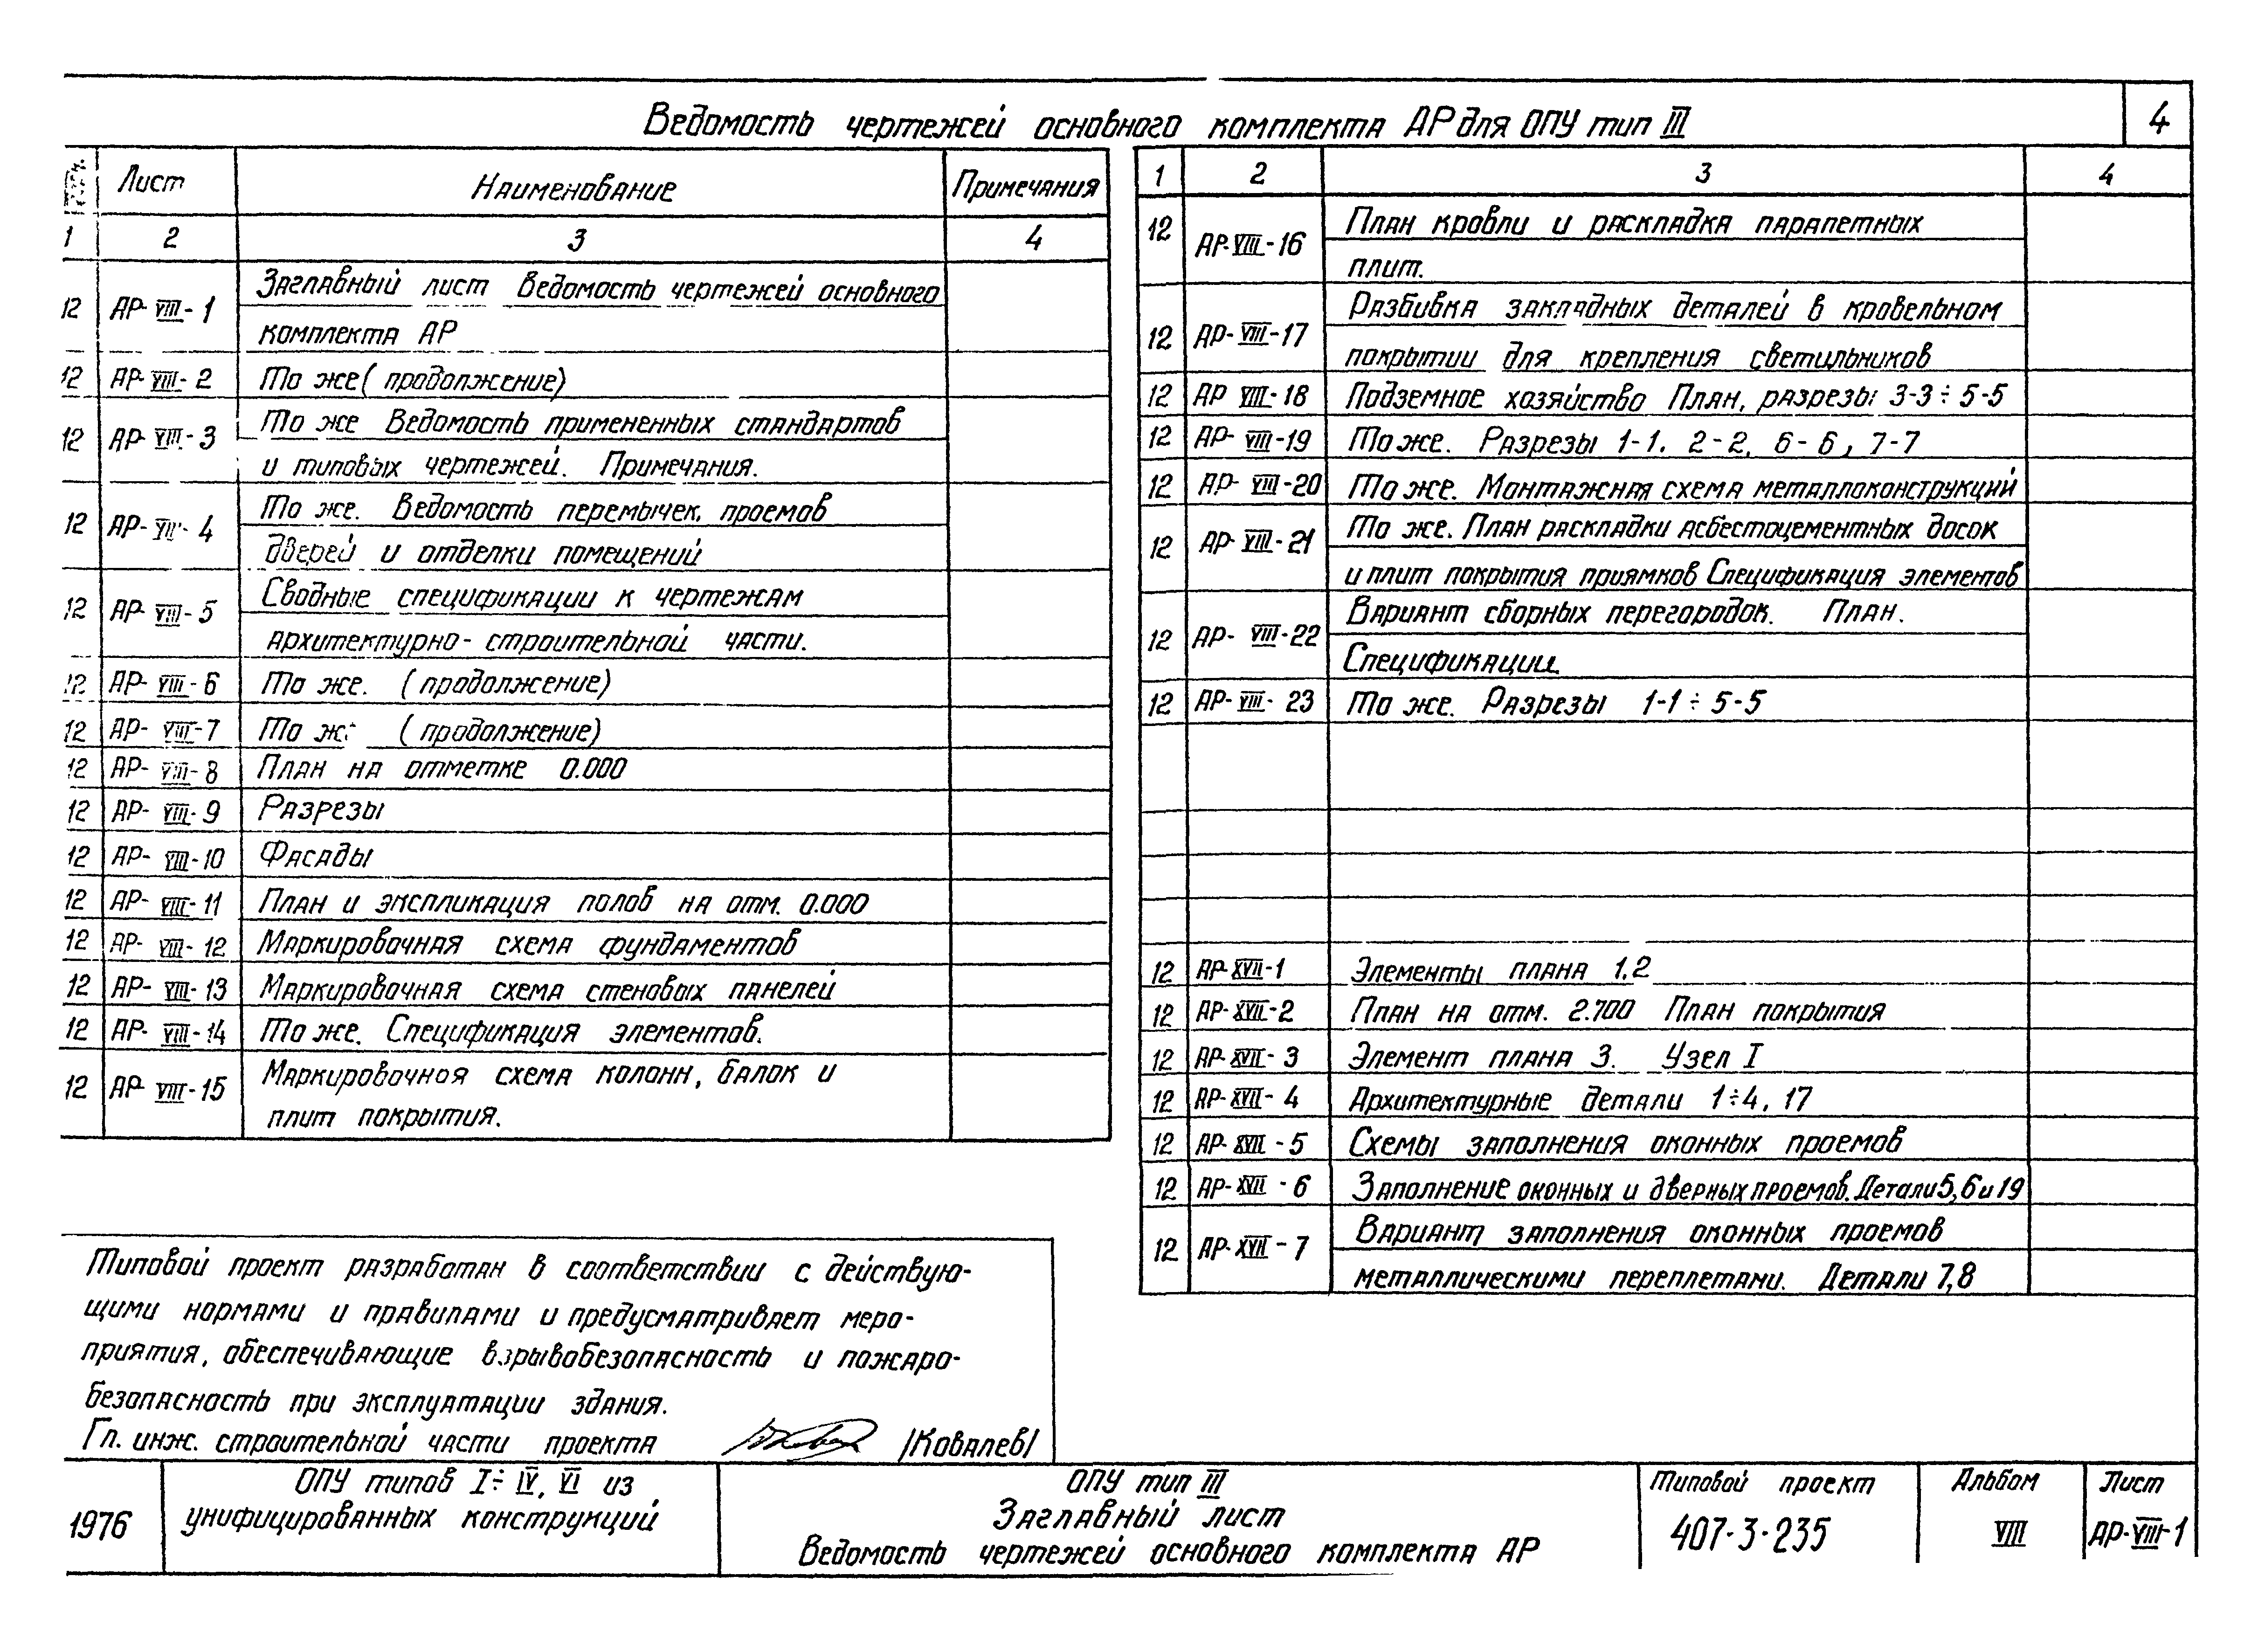 Ведомость чертежей основного комплекта АР для ОПУ тип III
4
Лист Наименование Примечания
1 2 3 4
12 АР-VIII-1 Заглавный лист Ведомость чертежей основного
комплекта АР
12 АР-VIII-2 То же (продолжение)
12 АР-VIII-3 То же Ведомость примененных стандартов
и типовых чертежей. Примечания.
12 АР-VIII-4 То же. Ведомость перемычек, проемов
дверей и отделки помещений
12 АР-VIII-5 Сводные спецификации к чертежам
архитектурно-строительной части.
12 АР-VIII-6 То же. (продолжение)
12 АР-VIII-7 То же (продолжение)
12 АР-VIII-8 План на отметке 0.000
12 АР-VIII-9 Разрезы
12 АР-VIII-10 Фасады
12 АР-VIII-11 План и экспликация полов на отм. 0.000
12 АР-VIII-12 Маркировочная схема фундаментов
12 АР-VIII-13 Маркировочная схема стеновых панелей
12 АР-VIII-14 То же. Спецификация элементов.
12 АР-VIII-15 Маркировочная схема колонн, балок и
плит покрытия.
1 2 3 4
12 АР-VIII-16 План кровли и раскладка парапетных
плит.
12 АР-VIII-17 Разбивка закладных деталей в кровельном
покрытии для крепления светильников
12 АР VIII-18 Подземное хозяйство План, разрезы 3-3÷5-5
12 АР-VIII-19 То же. Разрезы 1-1. 2-2, 6-6, 7-7
12 АР-VIII-20 То же. Монтажная схема металлоконструкций
12 АР-VIII-21 То же. План раскладки асбестоцементных досок
и плит покрытия приямков Спецификация элементов
12 АР-VIII-22 Вариант сборных перегородок. План.
Спецификации.
12 АР-VIII-23 То же. Разрезы 1-1÷5-5
12 АР-XVII-1 Элементы плана 1,2
12 АР-XVII-2 План на отм. 2.700 План покрытия
12 АР-XVII-3 Элемент плана 3. Узел I
12 АР-XVII-4 Архитектурные детали 1÷4, 17
12 АР-XVII-5 Схемы заполнения оконных проемов
12 АР-XVII-6 Заполнение оконных и дверных проемов. Детали 5, 6 и 19
12 АР-XVII-7 Вариант заполнения оконных проемов
металлическими переплетами. Детали 7,8
Типовой проект разработан в соответствии с действую-
щими нормами и правилами и предусматривает меро-
приятия, обеспечивающие взрывобезопасность и пожаро-
безопасность при эксплуатации здания.
Гл. инж. строительной части проекта /Ковалев/
1976
ОПУ типов I÷IV, VI из
унифицированных конструкций
ОПУ тип III
Заглавный лист
Ведомость чертежей основного комплекта АР
Типовой проект
407-3-235
Альбом
VIII
Лист
АР-VIII-1